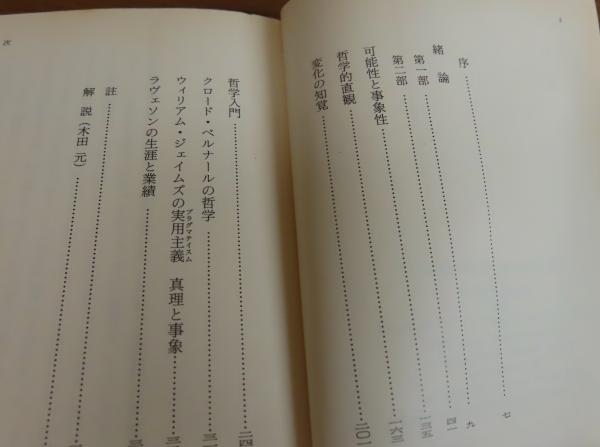 序 七
緒論 九
第一部
第二部 四一
可能性と事象性 一三五
哲学的直観 一六三
変化の知覚 二〇一
次
哲学入門 二四
クロード・ベルナールの哲学 三
ウィリアム・ジェイムズの実用主義 真理と事象
プラグマテイスム
ラヴェソンの生涯と業績
註
解説(木田 元)